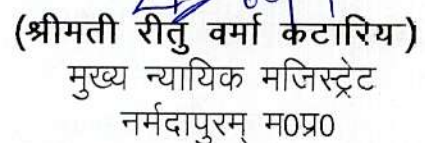 (श्रीमती रीतु वर्मा कटारिय)
मुख्य न्यायिक मजिस्ट्रेट
नर्मदापुरम् म0प्र0